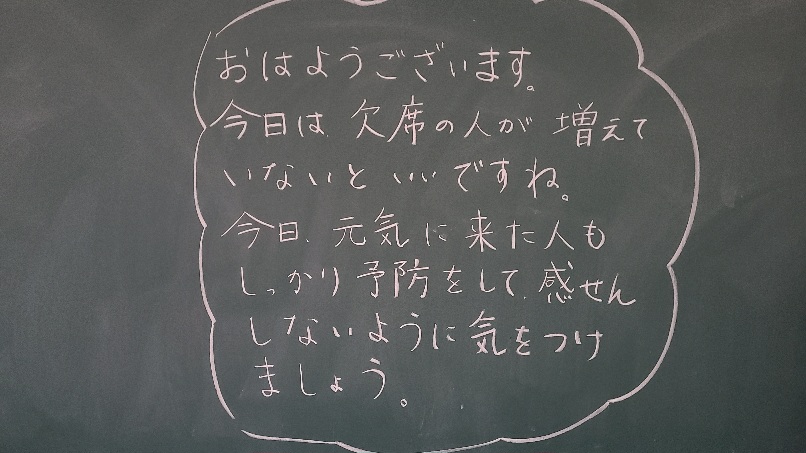 おはようございます。
今日は、欠席の人が 増えて
いないと いいですね。
今日、元気に来た人も
しっかり予防をして、感せん
しないように気をつけ
ましょう。